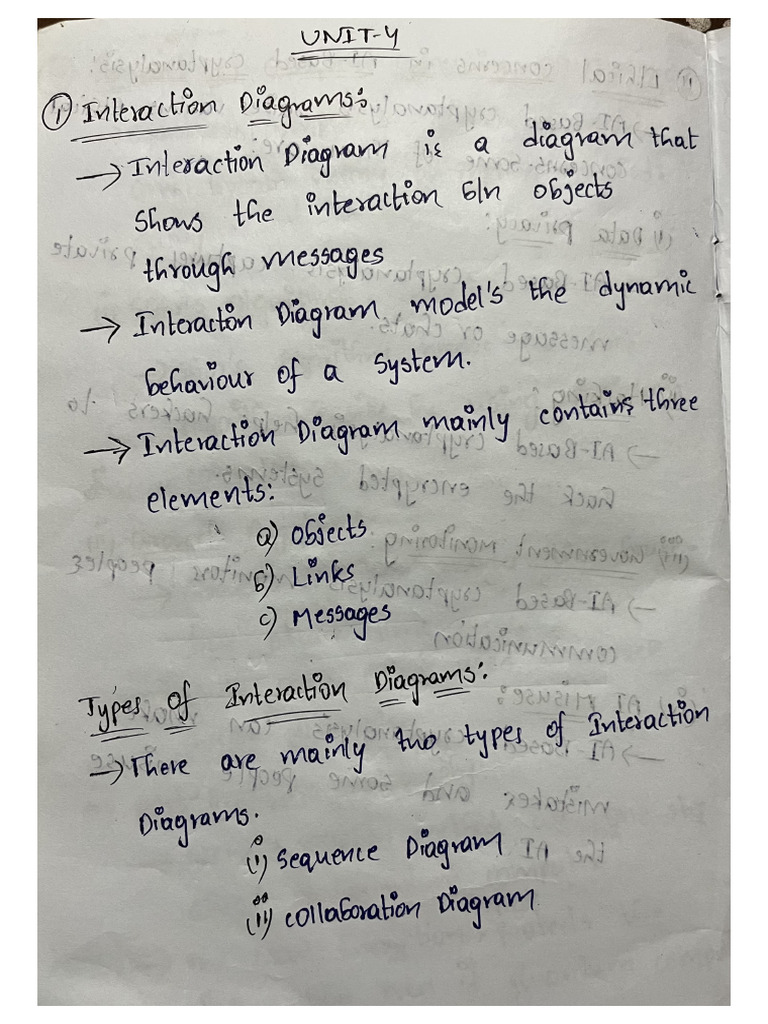 UNIT-4
① Interaction Diagrams:
→ Interaction Diagram is a diagram that
shows the interaction b/n objects
through messages
→ Interacton Diagram model's the dynamic
behaviour of a system.
→ Interaction Diagram mainly contains three
elements:
a) Objects
b) Links
c) Messages
Types of Interaction Diagrams:
→ There are mainly two types of Interaction
Diagrams.
(i) Sequence Diagram
(ii) Collaboration Diagram